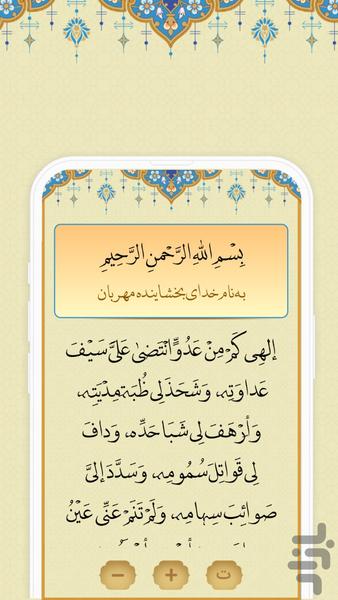 بِسْمِ اللهِ الرَّحْمنِ الرَّحِيمِ
به نام خدای بخشاینده مهربان
إِلهِي كَمْ مِنْ عَدُوٍّ انْتَضىٰ عَلَيَّ سَيْفَ
عَداوَتِهِ، وَشَحَذَ لِي ظُبَةَ مِدْيَتِهِ،
وَأَرْهَفَ لِي شَبَا حَدِّهِ، وَدافَ
لِي قَواتِلَ سُمُومِهِ، وَسَدَّدَ إِلَيَّ
صَوائِبَ سِهامِهِ، وَلَمْ تَنَمْ عَنِّي عَيْنُ
− + ت
بازار